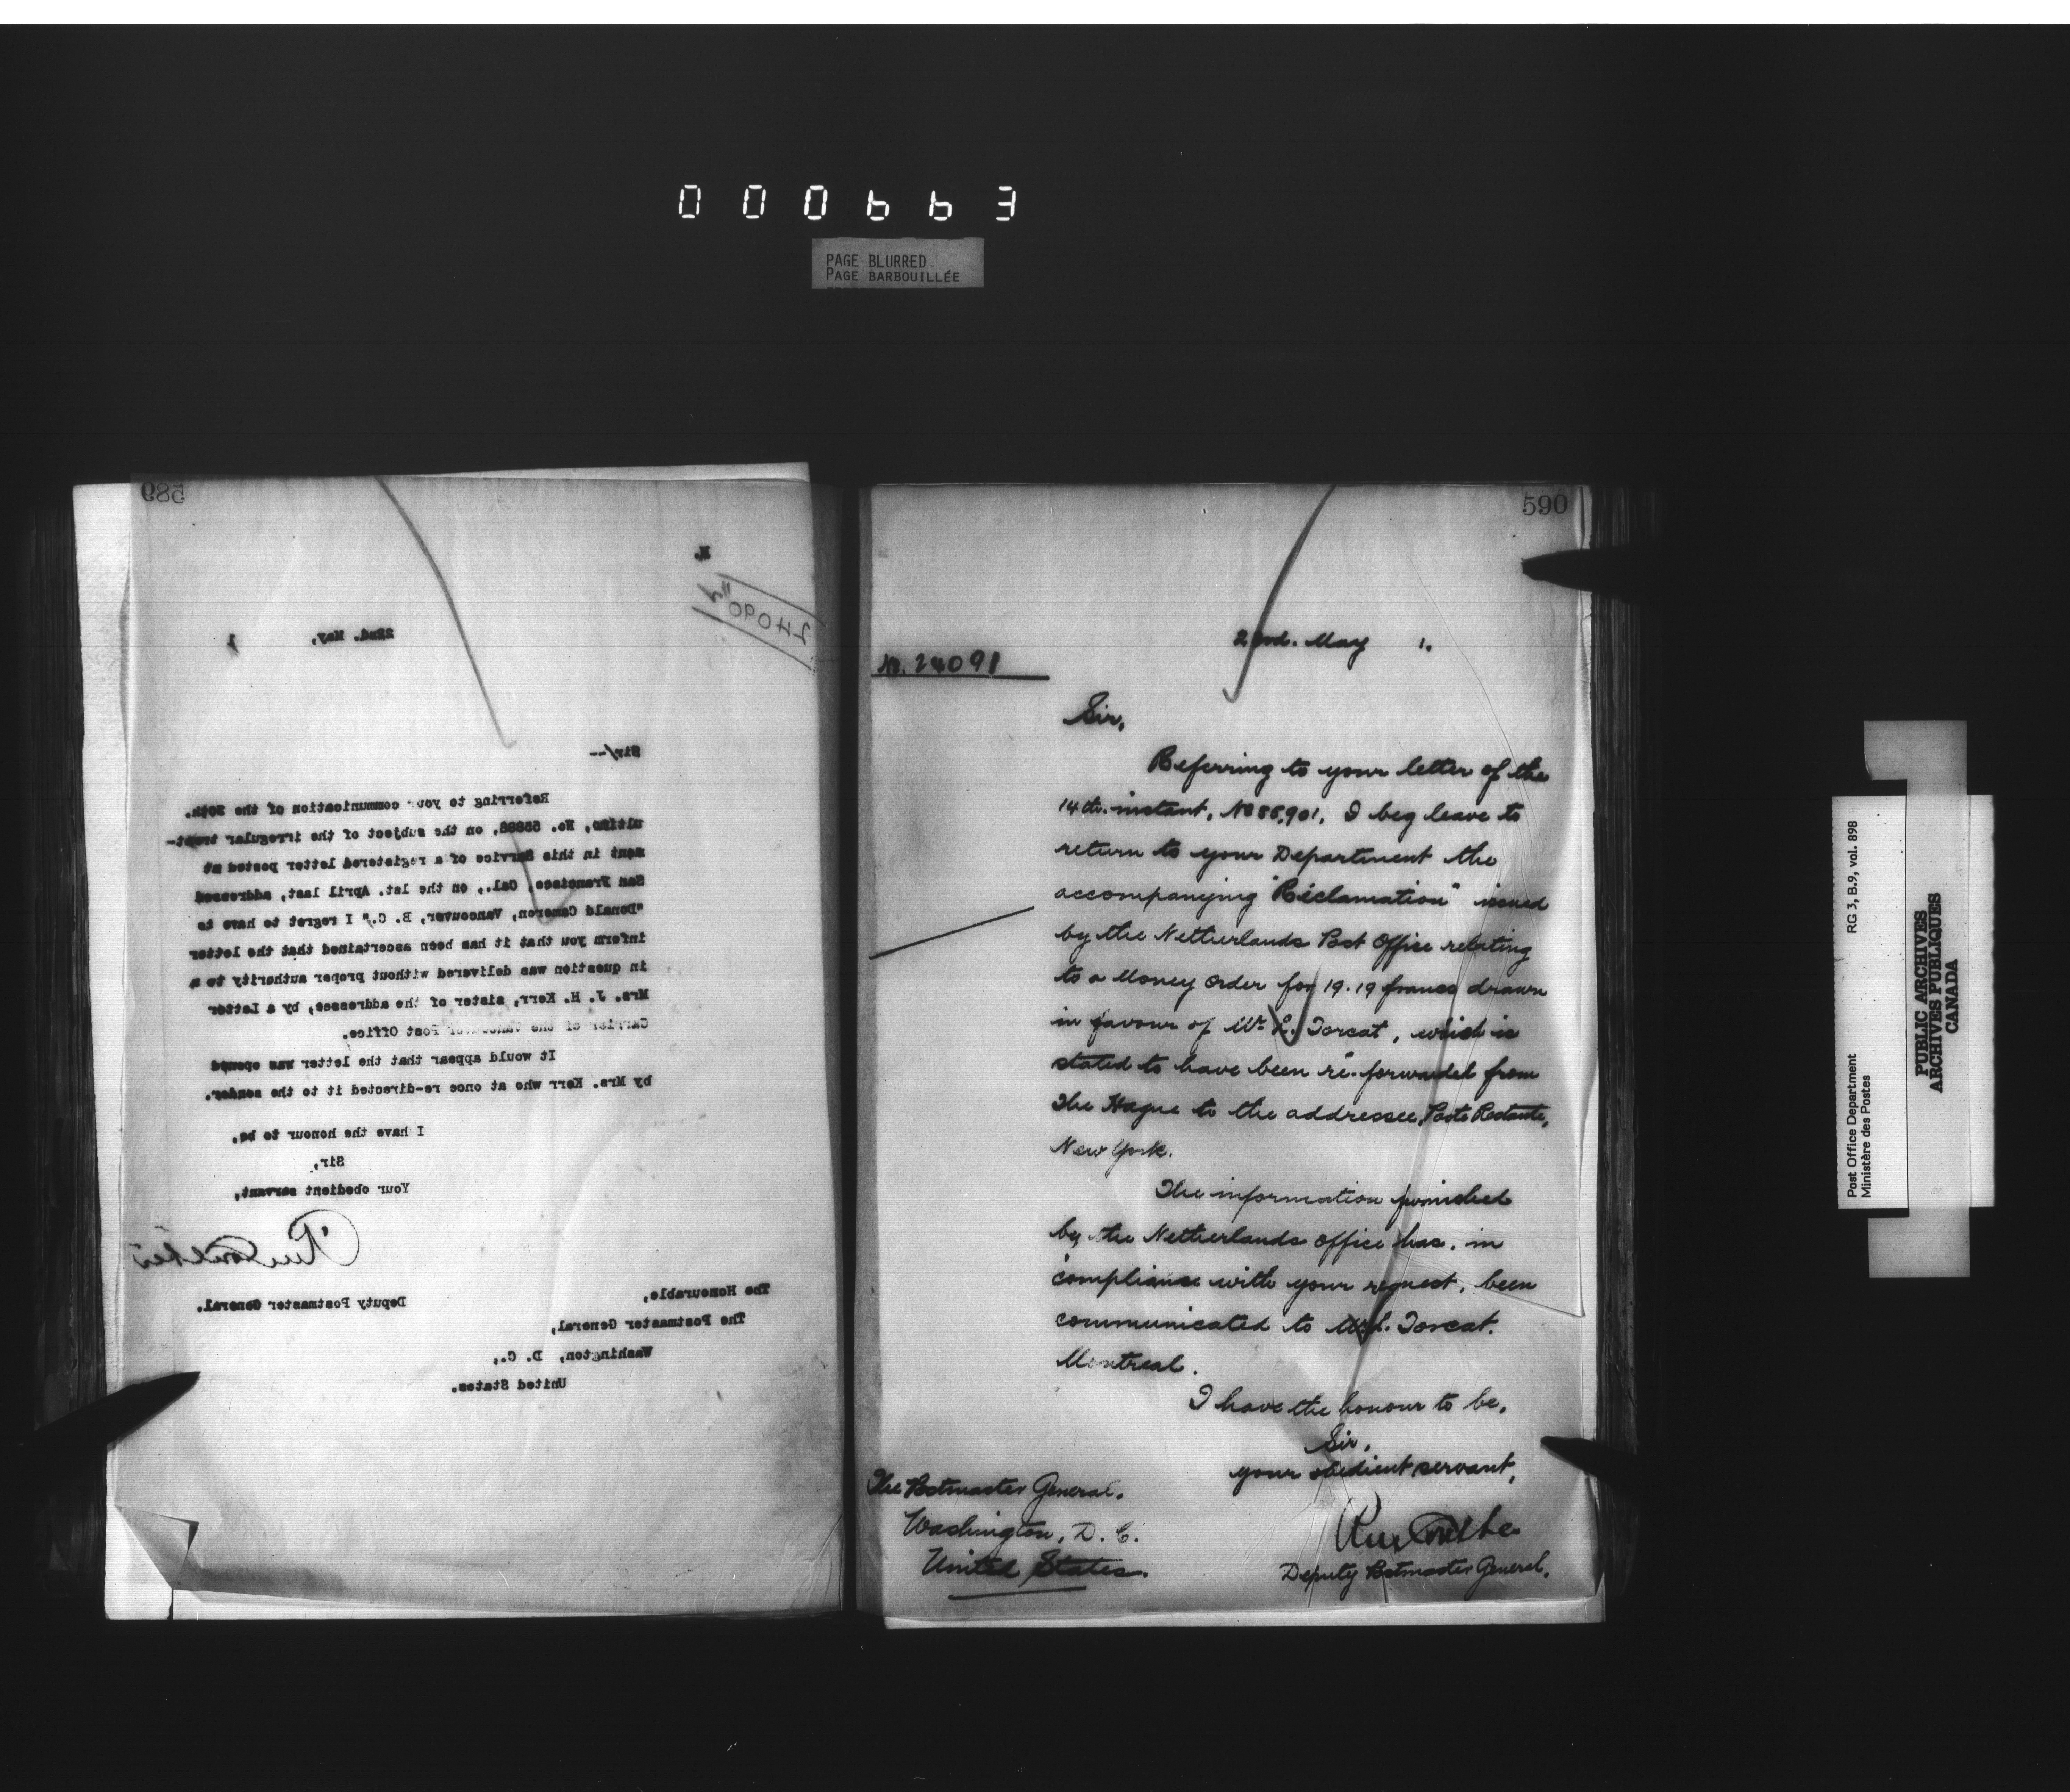 000663
PAGE BLURRED
PAGE BARBOUILLÉE
589
M.
24090
22nd. May, 1
Sir/--
Referring to your communication of the 20th.
ultimo, No. 55886, on the subject of the irregular treat-
ment in this Service of a registered letter posted at
San Francisco, Cal., on the 1st. April last, addressed
"Donald Cameron, Vancouver, B. C." I regret to have to
inform you that it has been ascertained that the letter
in question was delivered without proper authority to a
Mrs. J. H. Kerr, sister of the addressee, by a Letter
Carrier of the Vancouver Post Office.
It would appear that the letter was opened
by Mrs. Kerr who at once re-directed it to the sender.
I have the honour to be,
Sir,
Your obedient servant,
Deputy Postmaster General.
The Honourable,
The Postmaster General,
Washington, D. C.,
United States.
590
22nd. May 1.
No. 24091
Sir,
Referring to your letter of the
14th. instant, No 86,901, I beg leave to
return to your Department the
accompanying "Réclamation" issued
by the Netherlands Post Office relating
to a Money Order for 19.19 francs drawn
in favour of Mr. L. Torcat, which is
stated to have been re-forwarded from
The Hague to the addressee, Poste Restante,
New York.
The information furnished
by the Netherlands Office has, in
compliance with your request, been
communicated to Mr. L. Torcat.
Montreal.
I have the honour to be,
Sir,
your obedient servant,
Deputy Postmaster General.
The Postmaster General.
Washington, D. C.
United States.
Post Office Department
Ministère des Postes
RG 3, B.9, vol. 898
PUBLIC ARCHIVES
ARCHIVES PUBLIQUES
CANADA